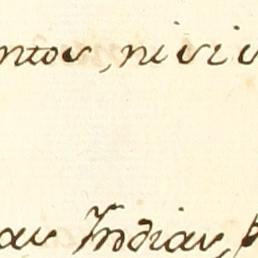 ntos, ni si
as Indias,